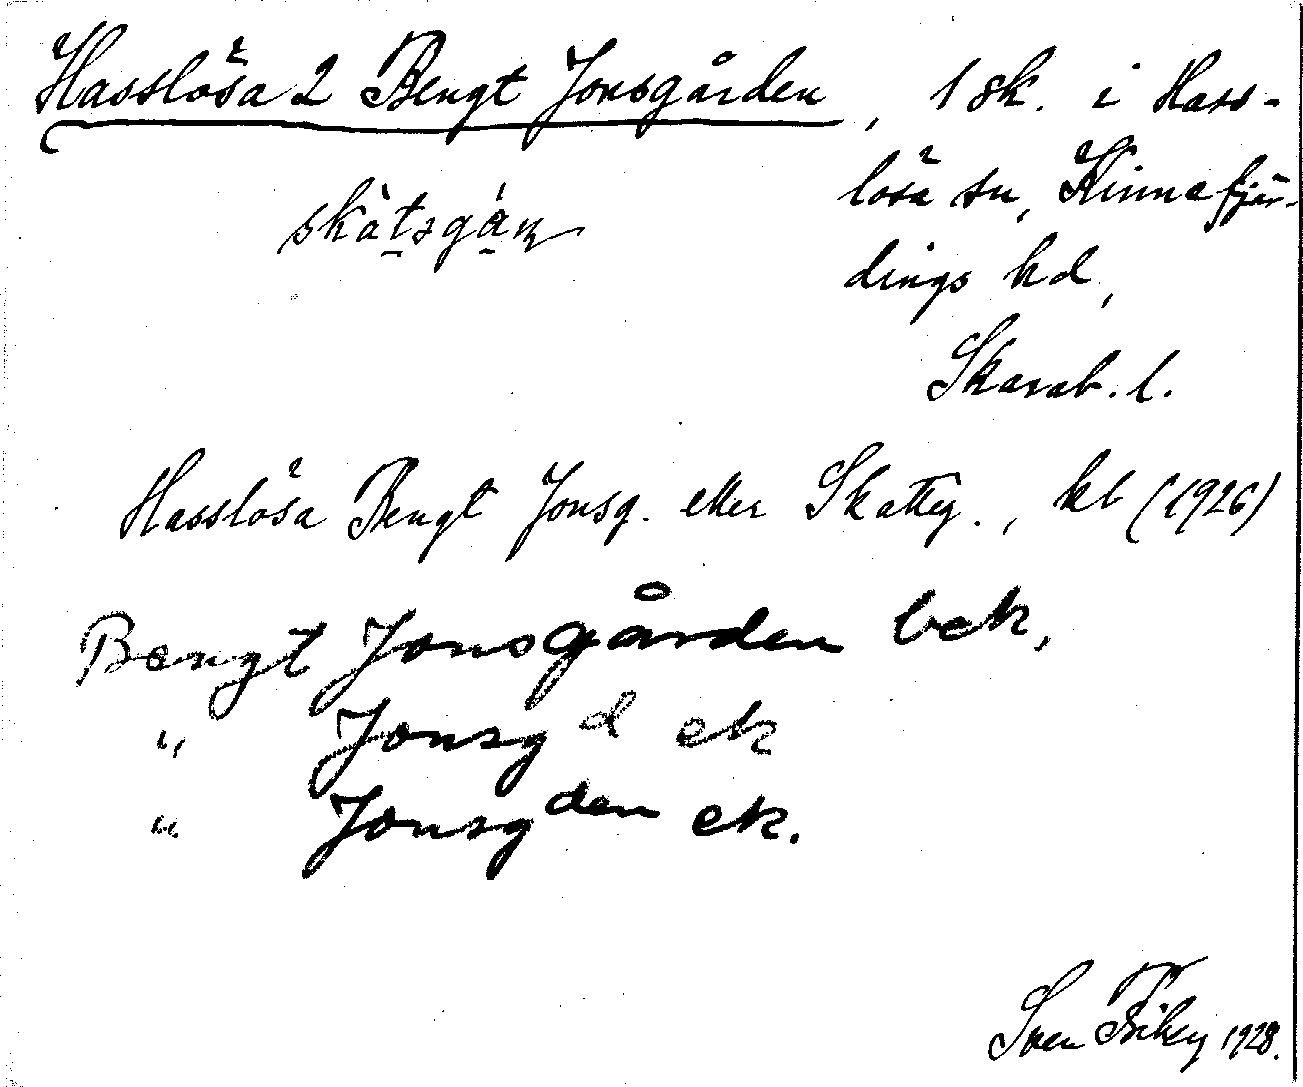 Hasslösa 2 Bengt Jonsgården, 1 sk. i Hass-
lösa sn, Kinnefjär-
dings hd,
Skarab. l.
Hasslösa Bengt Jonsg. eller Skatteg., kb (1926)
Bengt Jonsgården bek,
" Jonsg d ek
" Jonsg den ek.
Sven 1928.